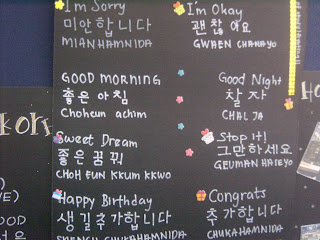 I'm Sorry
미안합니다
MIANHAMNIDA
I'm Okay
괜찮아요
GWAEN CHANAYO
GOOD MORNING
좋은 아침
Choheun achim
Good Night
찰 자
CHAL JA
Sweet Dream
좋은 꿈 꿔
CHOH EUN KKUM KKWO
Stop it!
그만하세요
GEUMAN HASEYO
Happy Birthday
생길추가합니다
CHUKAHAMNIDA
Congrats
추가합니다
CHUKAHAMNIDA